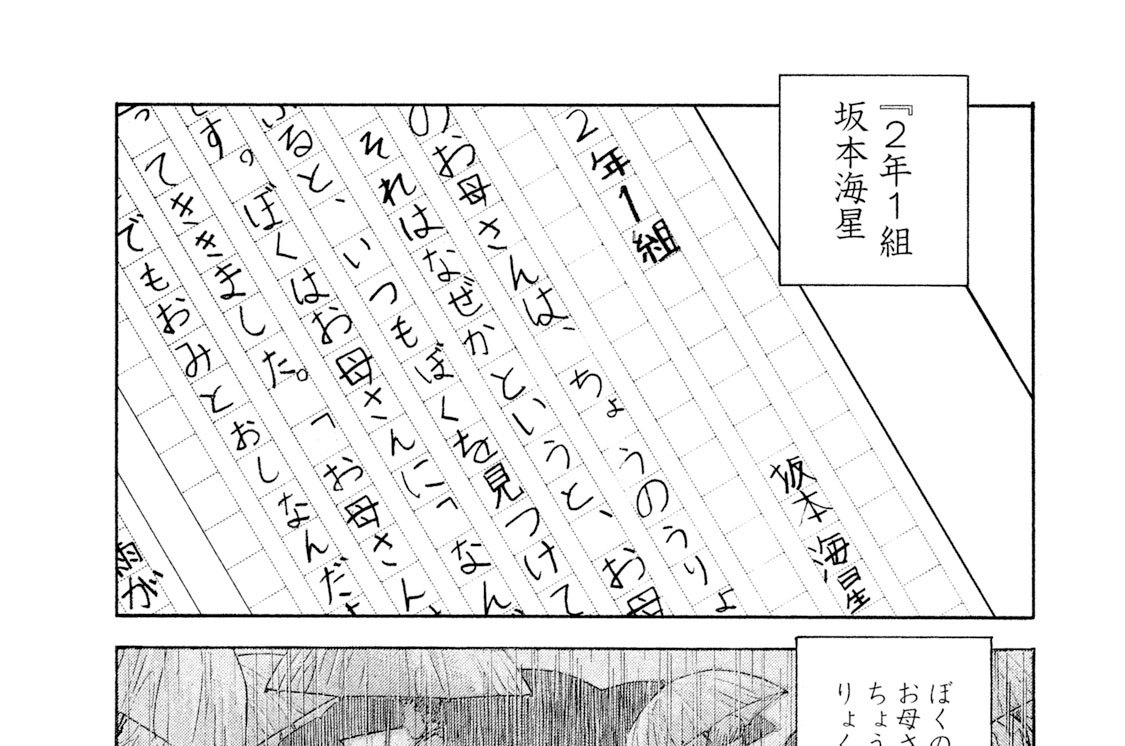 『２年１組
坂本海星
２年１組
坂本海星
のお母さんは、ちょうのうりょ
それはなぜかというと、お母
ふると、いつもぼくを見つけて
す。ぼくはお母さんに「なん
てききました。「お母さん
でもおみとおしなんだよ
雨が
ぼくの
お母さ
ちょう
りょく